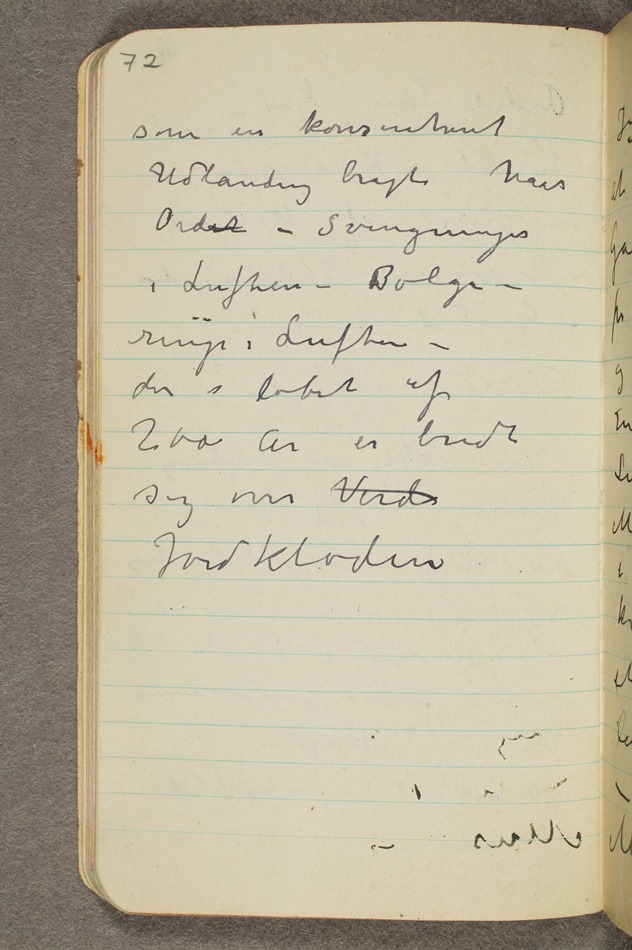 72
som en konsentrent
Udlanding bragte hans
Ordet – Svingninger
i Luften – Bølge –
ringe i Luften –
der i løbet af
2000 År er bredt
sig over Verds
Jordkloden